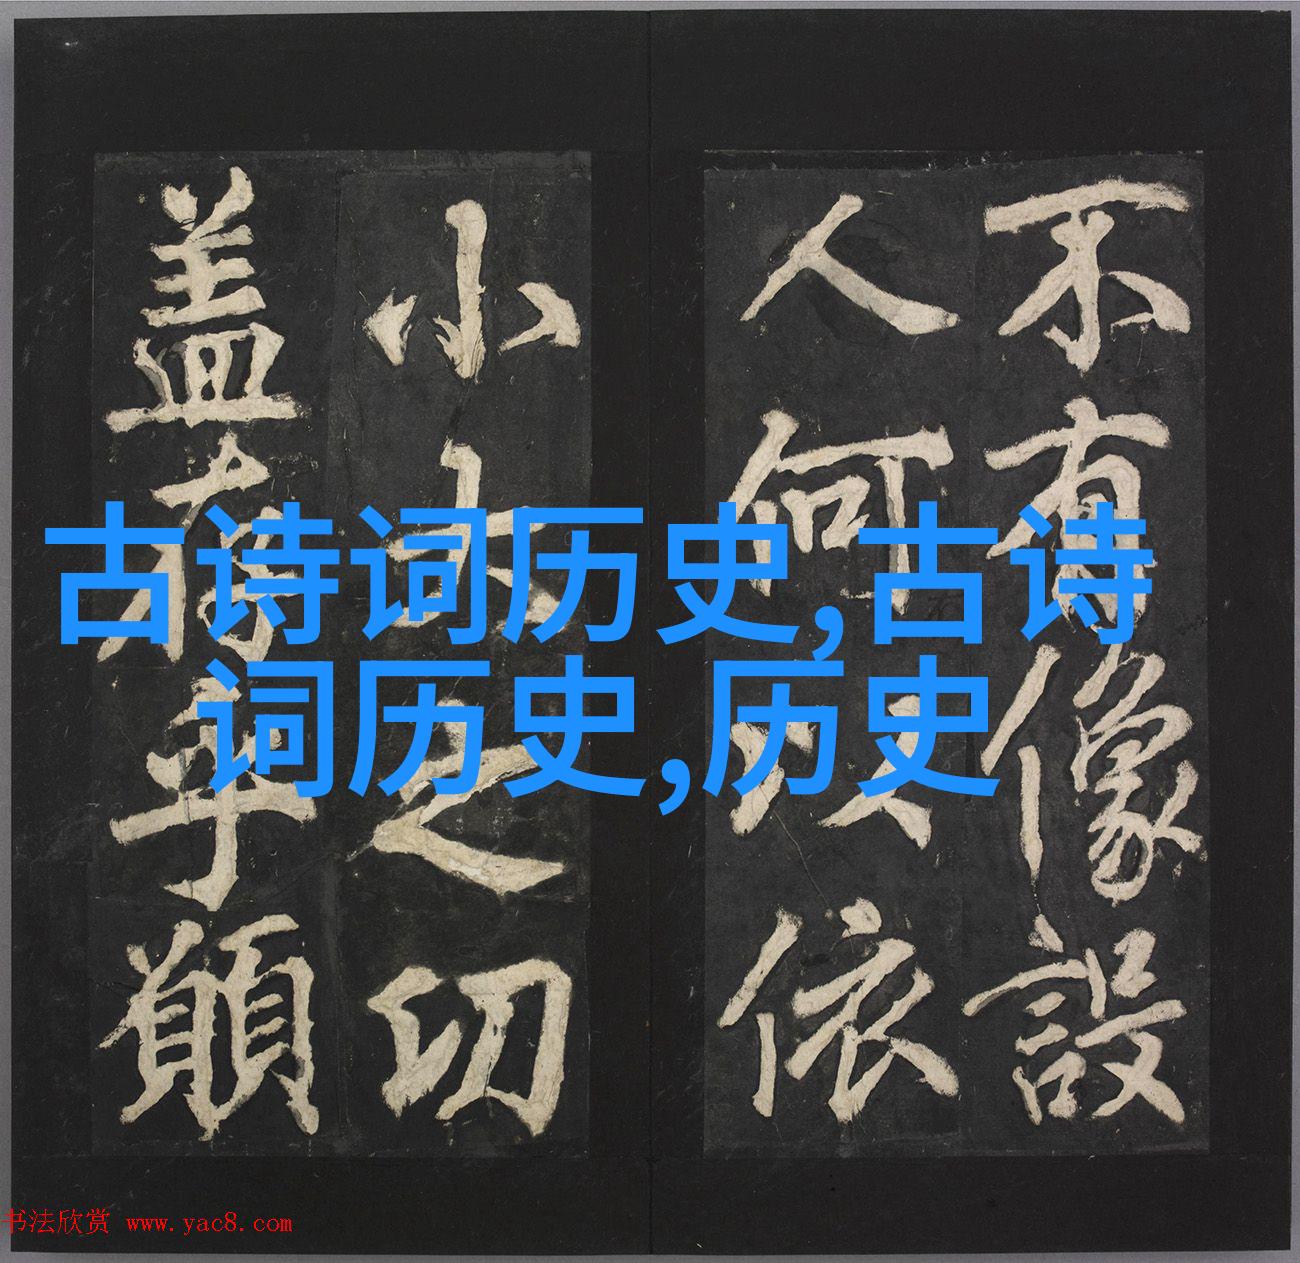 不有像設
人何以依
小大之切
盖存乎願
古诗词历史,古诗
词历史,历史
书法欣赏 www.yac8.com